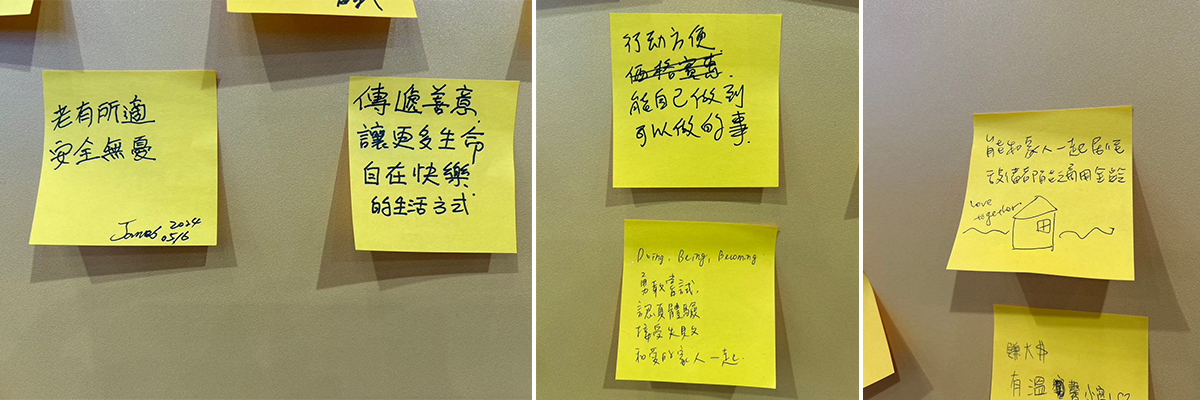 老有所適
安全無憂
James 2024
05/6
傳遞善意
讓更多生命
自在快樂
的生活方式
行动方便
価格實惠
能自己做到
可以做的事
Doing, Being, Becoming
勇敢嘗試
認真體驗
接受失敗
和愛的家人一起
能和家人一起居住
設備都能適用全齡
love
together
賺大錢
有溫馨小窩